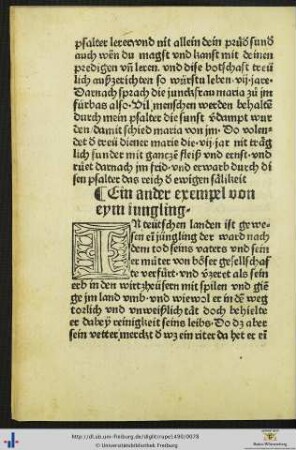 psalter lerer/vnd nit allein dein průd̕ sund̕
auch wen̄ du magst vnd kanst mit deinen
predigen vn̄ leren. vnd dise botschaft treü
lich außzerichten so würstu leben .vij. jare.
Darnach sprach die junckfrau maria zů jm
fürbas also. Vil menschen werden behaltē
durch mein psalter die sunst v̕dampt wur
den/damit schied maria von jm. Do volen
det d̕ treü diener marie die .vij. jar nit träg
lich sunder mit ganczē fleiß vnd ernst. vnd
rüet darnach jm frid. vnd erwarb durch di
sen psalter das reich d̕ ewigen säligkeit
¶ Ein ander exempel von
eym iungling.
IN teutschen landen ist gewe
sen ein̄ jüngling der ward nach
dem tod seins vaters vnd sein
er můter von böser gesellschaf
te verfürt. vnd v̕zeret als sein
erb in den wirtzheüsern mit spilen vnd gien̄
ge jm land vmb. vnd wiewol er in dē weg
torlich vnd vnweißlich tät doch behielte
er dabey reinigkeit seins leibs. Do dz aber
sein vetter merckt d̕ wz ein riter da het er ei
http://dl.ub.uni-freiburg.de/diglit/rupe1490/0078
© Universitätsbibliothek Freiburg
Baden-Württemberg